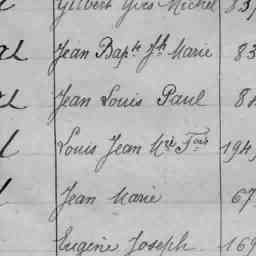 Gilbert Yves Michel 83
Jean Bapte Jh Marie 83
Jean Louis Paul 8
Louis Jean Mie Fois 194
Jean Marie 67
Eugène Joseph 169